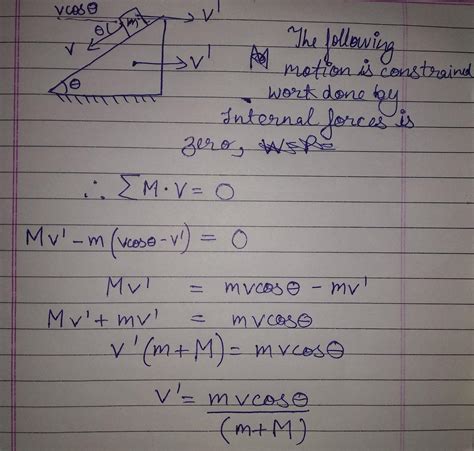 vcosθ
θ
m
V'
V
V'
θ
The following
motion is constrained
work done by
Internal forces is
zero,
∴ ΣM·V = 0
Mv' - m(vcosθ - v') = 0
Mv' = mvcosθ - mv'
Mv' + mv' = mvcosθ
V'(m+M) = mvcosθ
V' = mvcosθ
(m+M)